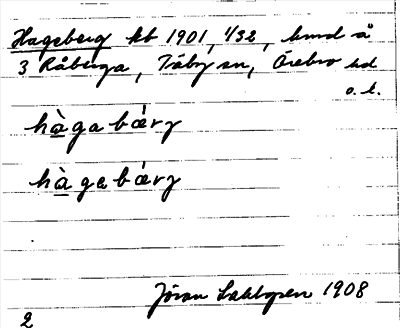 Hageberg hb 1901, 1/32, hmd å
3 Råberga, Täby sn, Örebro hd
o. l.
hàgabær̀g
hàgebær̀g
Jöran Sahlgren 1908
2